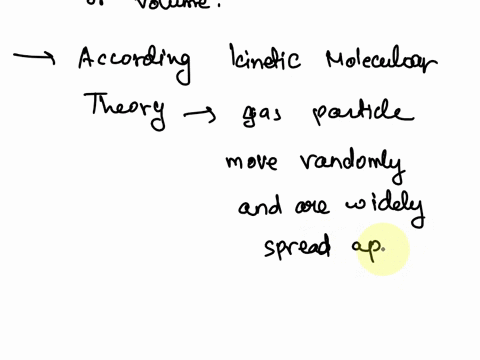 of volume.
→ According kinetic Molecular
Theory → gas particle
move randomly
and are widely
spread ap.